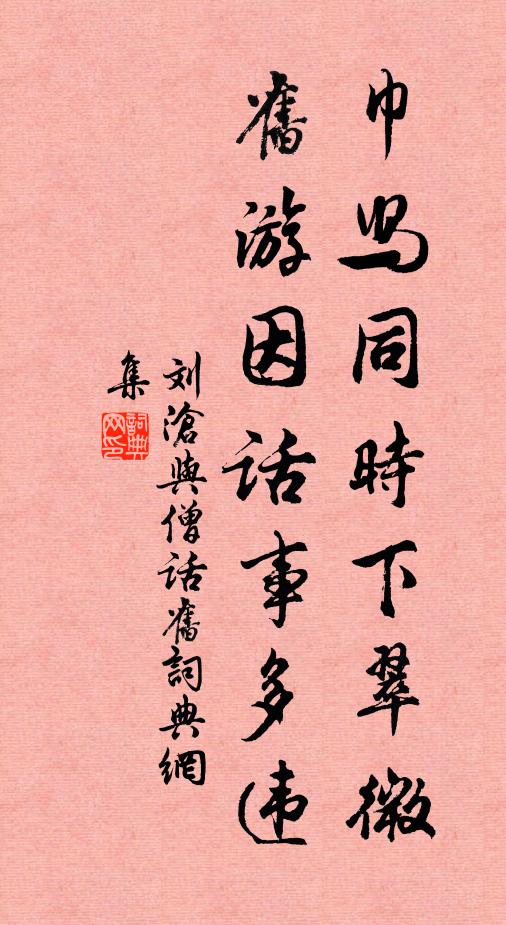 巾舄同時下翠微
舊游因话事多违
刘滄與僧话舊詞典網
集
詞典网印